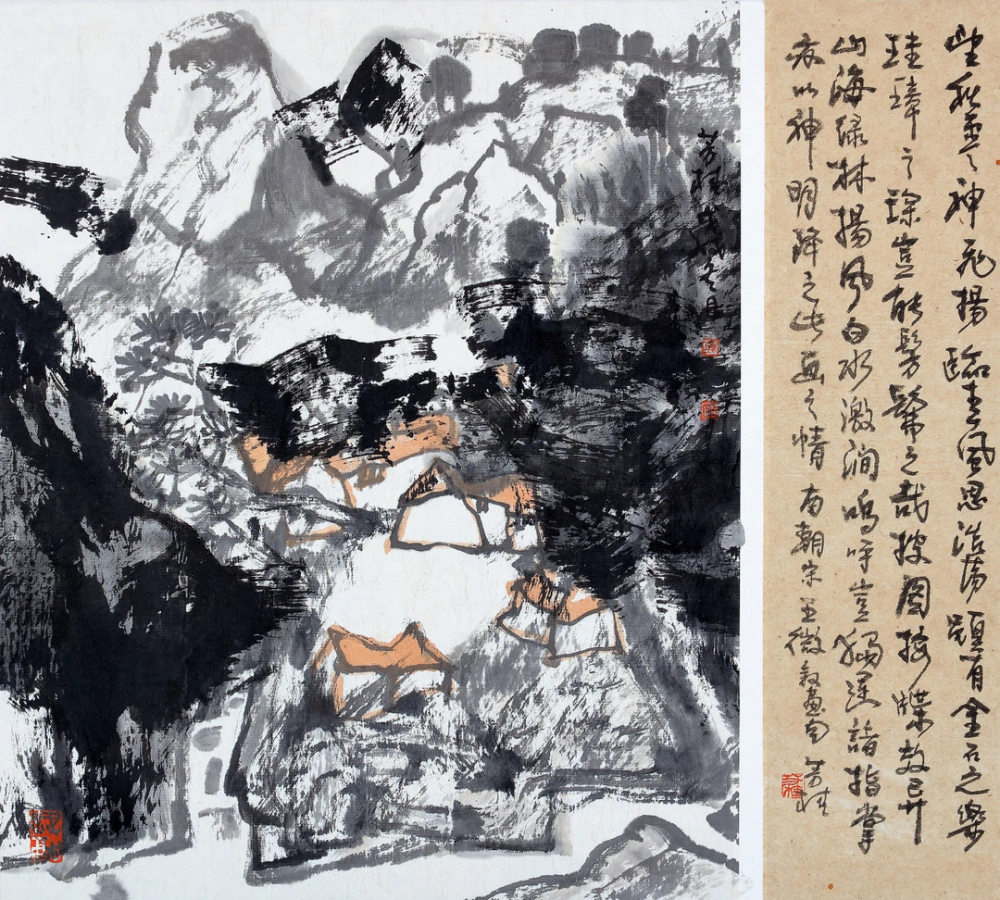 望秋雲神飛揚臨春風思浩蕩雖有金石之樂
珪璋之琛豈能髣髴之哉披圖按牒效异
山海緑林揚風白水激澗嗚呼豈獨運諸指掌
亦以神明降之此畫之情 南朝宋王微叙畫句 芳桂
芳桂戊戌冬月